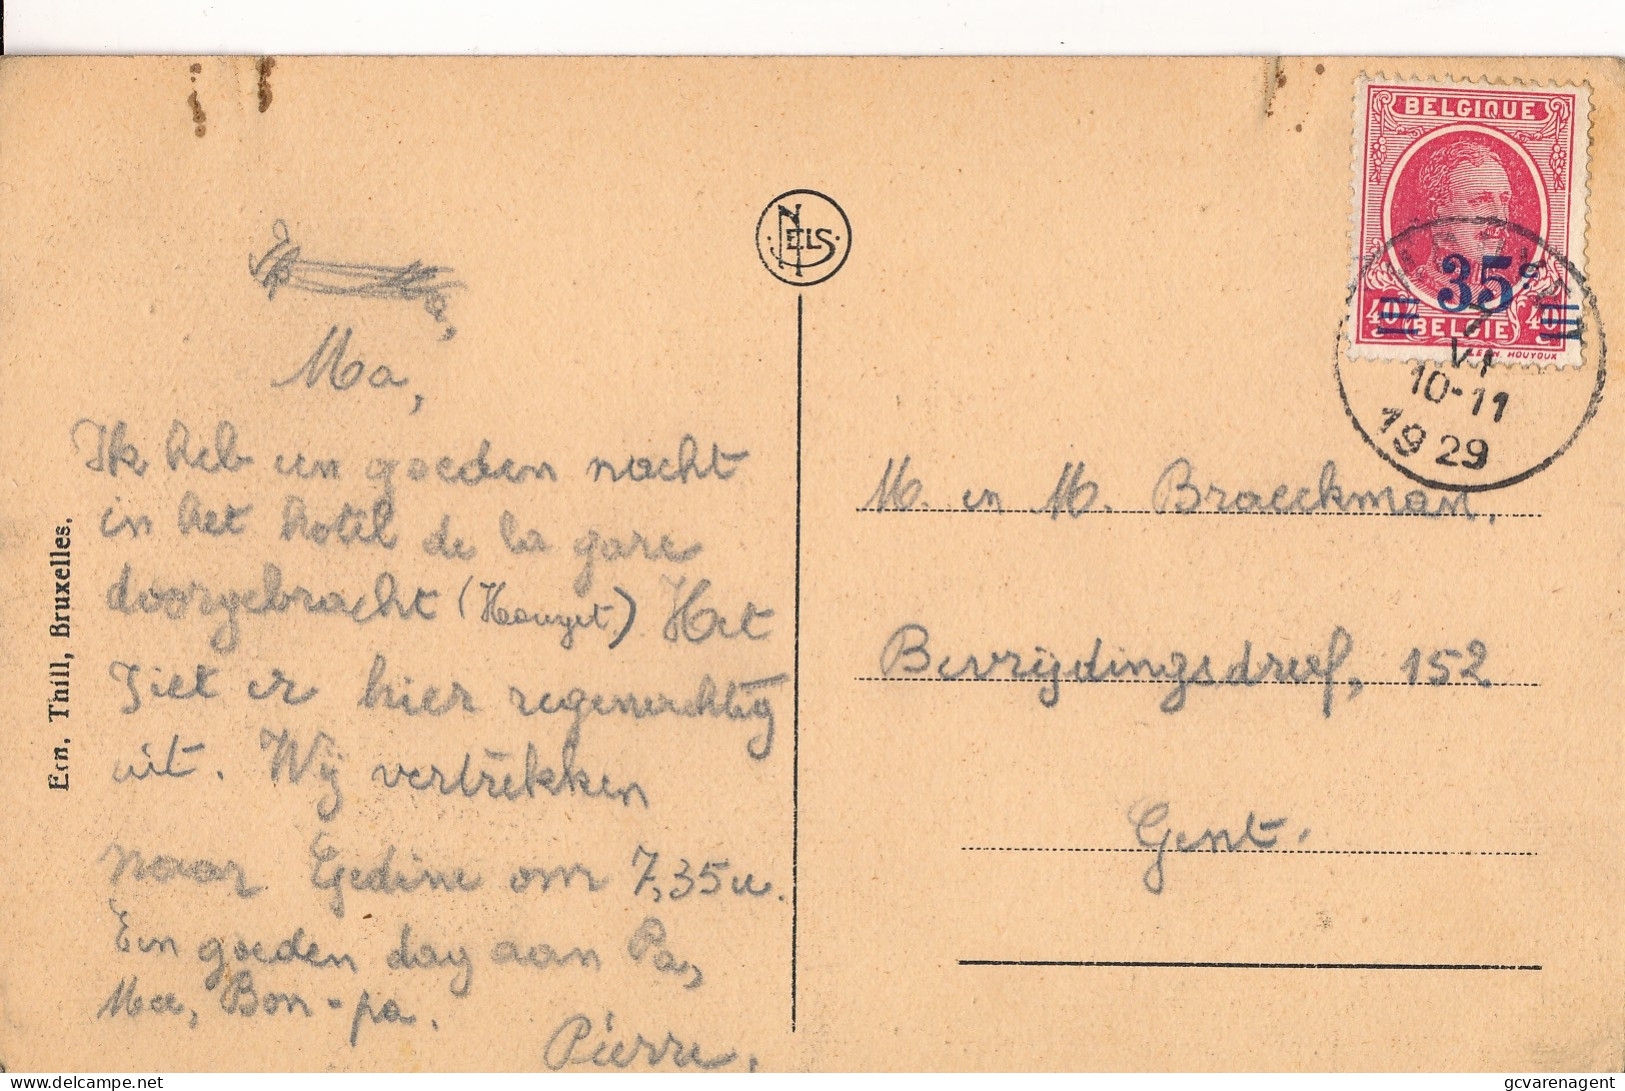 Ma,
Ik heb een goeden nacht
in het hotel de la gare
doorgebracht (Houyet) Het
ziet er hier regenachtig
uit. Wij vertrekken
naar Gedine om 7,35 u.
Een goeden dag aan Pa,
Ma, Bon-pa.
Pierre.
Ern. Thill, Bruxelles.
NELS
BELGIQUE
35c
40 BELGIE 40
HOUYOUX
VI
10-11
1929
M. en M. Braeckman.
Bevrijdingsdreef, 152
Gent.
delcampe.net
gcvarenagent